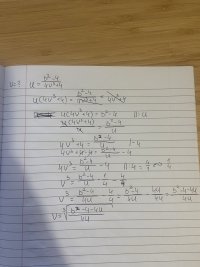 v=? u = \frac{b^2-4}{4v^3+4}
u(4v^3+4) = \frac{b^2-4}{4v^3+4} \cdot 4v^3+4
u(4v^3+4) = b^2-4 |: u
\frac{u(4v^3+4)}{u} = \frac{b^2-4}{u}
4v^3+4 = \frac{b^2-4}{u} |-4
4v^3+4-4 = \frac{b^2-4}{u} -4
4v^3 = \frac{b^2-4}{u} -4 |: 4 = \frac{4}{1} ⇔ \frac{1}{4}
v^3 = \frac{b^2-4}{u} \cdot \frac{1}{4} - \frac{4}{4}
v^3 = \frac{b^2-4}{4u} - \frac{4}{4} = \frac{b^2-4}{4u} - \frac{4u}{4u} = \frac{b^2-4-4u}{4u}
v = \sqrt[3]{\frac{b^2-4-4u}{4u}}